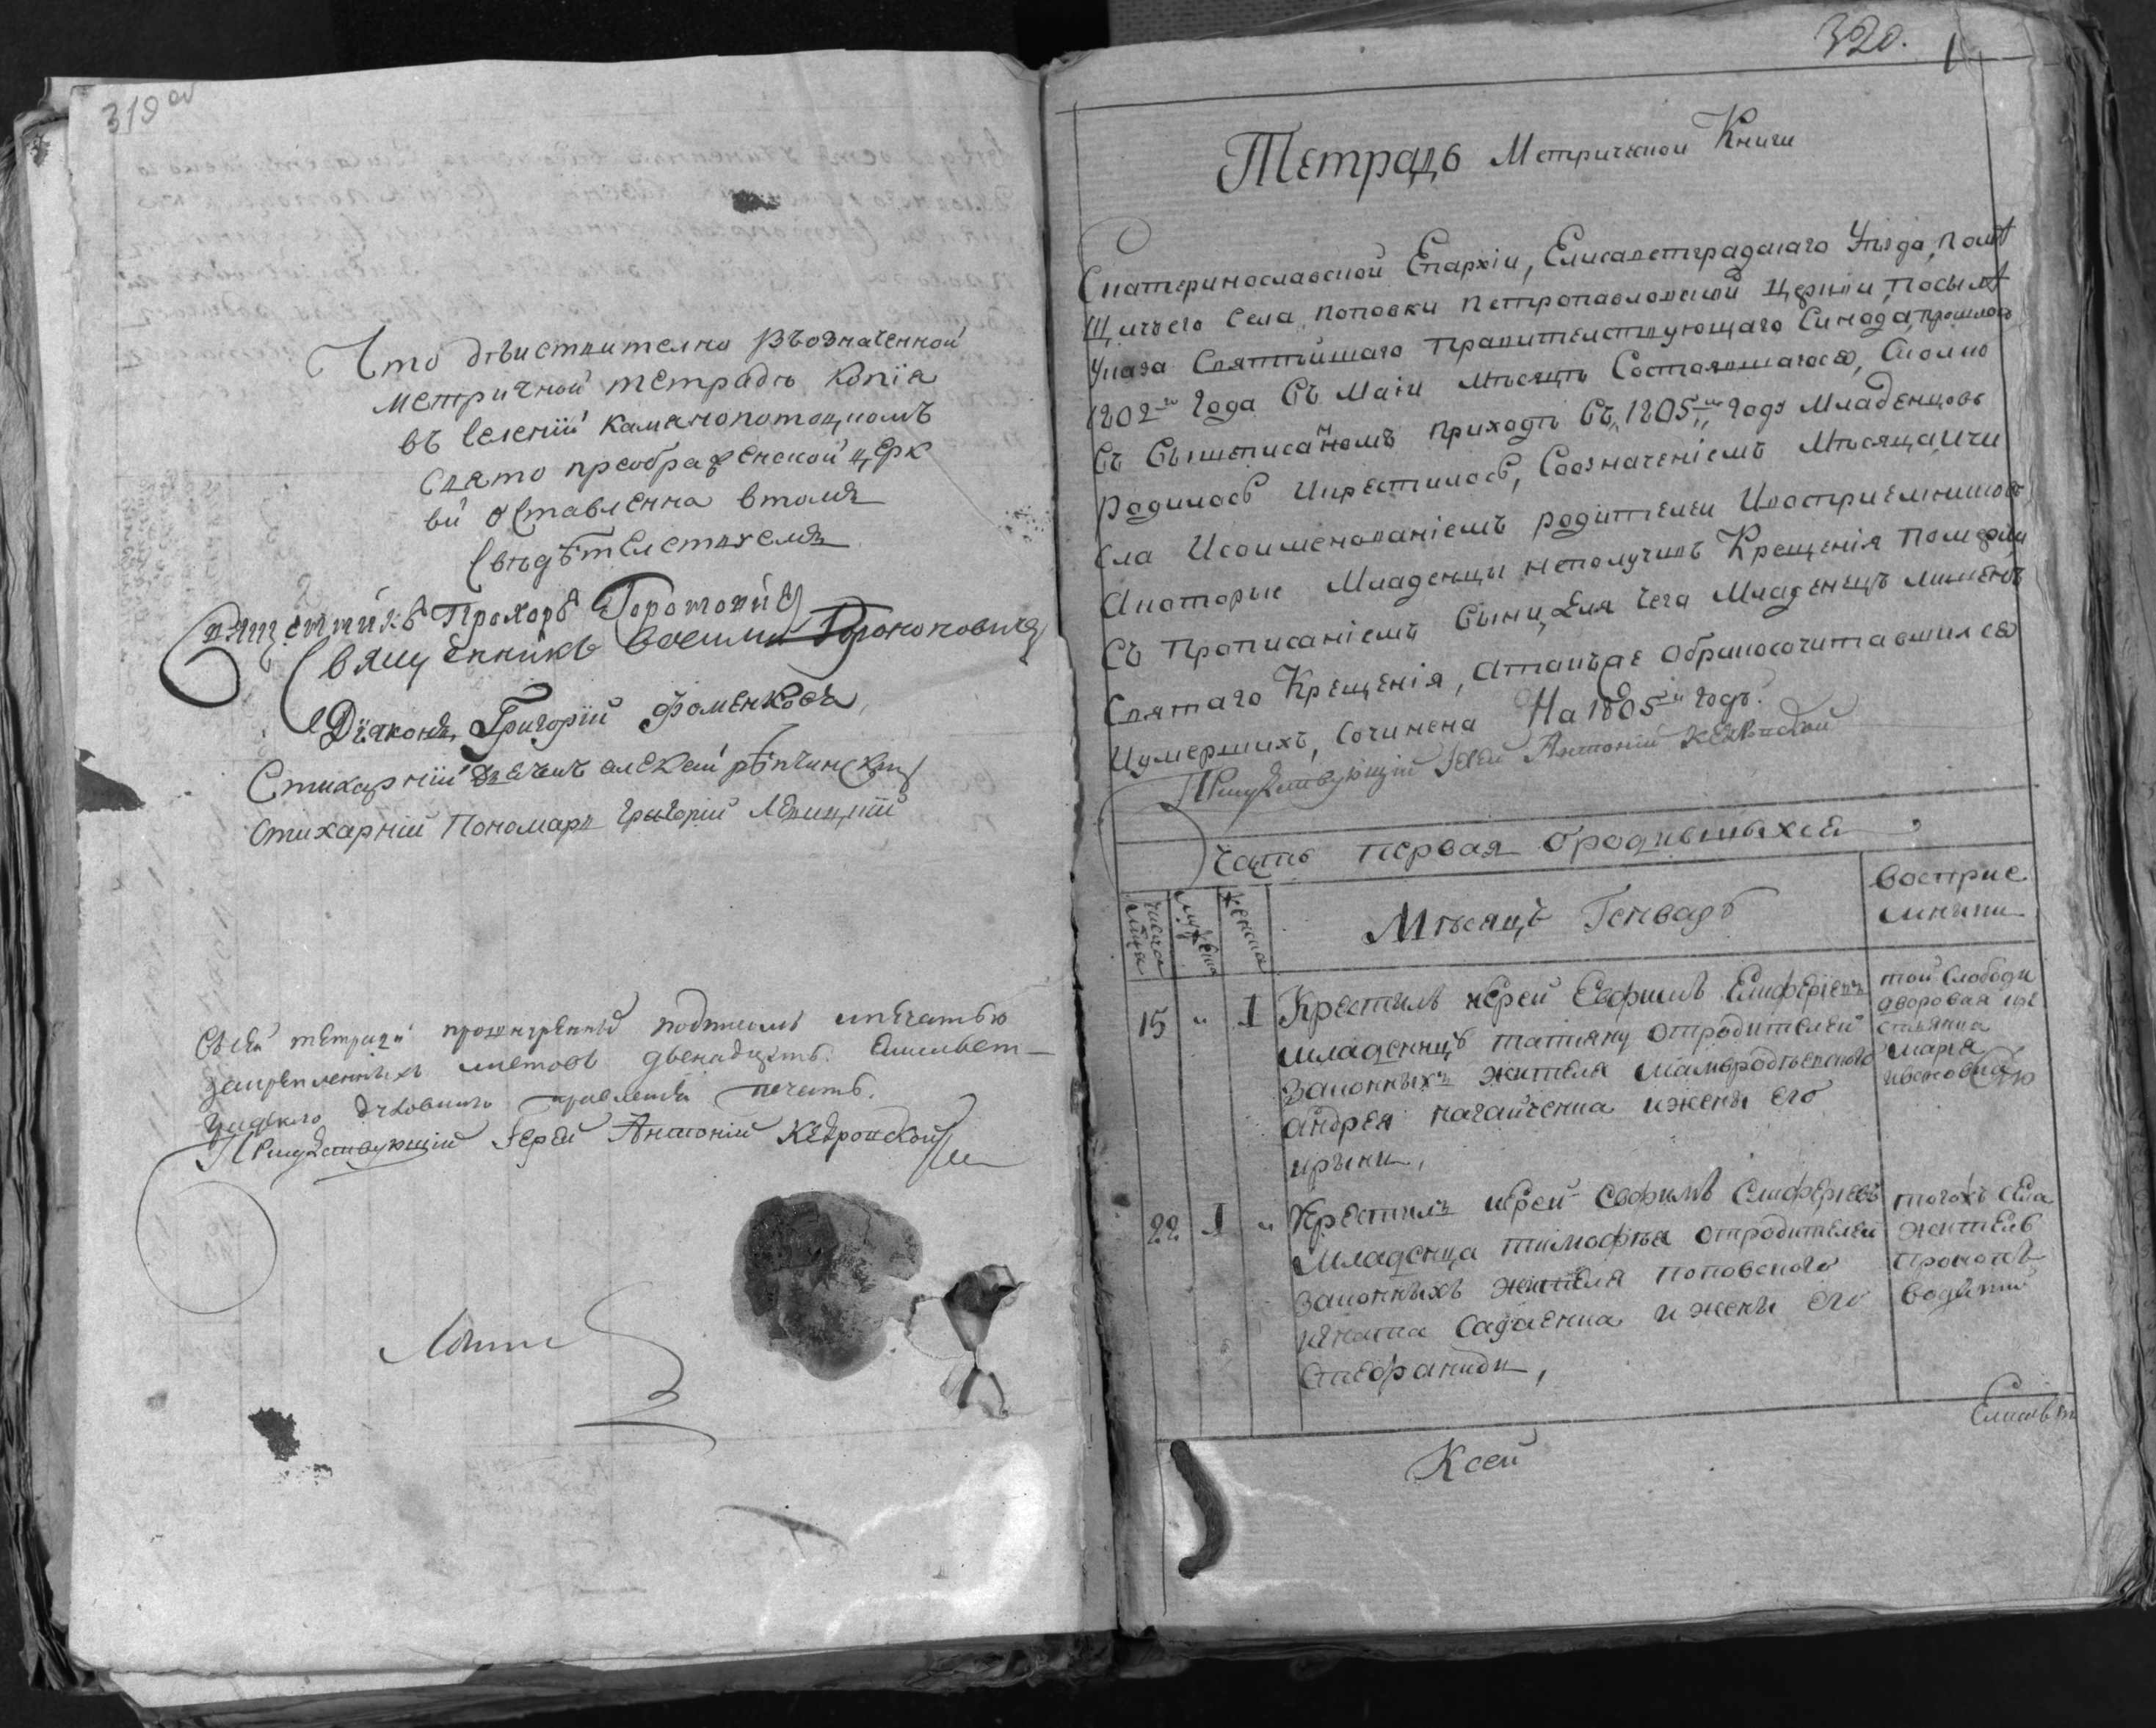 319 об
Что дѣиствително Въозначенной
метричной тетрадѣ копїя
въ Селенїй каманопотоцкомъ
Свято преображенской церк
вй оставленна втомъ
Свѣдѣтелствуемъ
Священникъ Прохоръ
Священникъ Василий
Дїяконъ Григорїй Фоменковъ
Стихарнїй дьячекъ алеѯей рѣпчинскїй
Стихарнїй Пономарь григорїй
Всей тетради подписомъ ипечатью
закрепленныхъ листовъ двенадцать. Елисавет-
духовнаго правленїя печать.
Присудствующїй Іерей Антонїй Кедровской
320. 1
Тетрадь Метрической Книги
Екатеринославской Епархїи, Елисаветградскаго Уѣзда, помѣ
щичьего села поповки петропавловской церкви, посилѣ
указа Святѣйшаго правителствующаго Синода, прошлого
1802го года Съ Маїи мѣсяцѣ Состоявшагося, Сколко
въ Вышеписанномъ приходѣ Съ 1805го годѣ Младенцовъ
родилось Икрестилось, Соозначенїемъ мѣсяца ичи
сла Исоименованїемъ родителеи Ивосприемниковъ
Акоторые Младенцы неполучивъ Крещенїя померли
Съ прописанїемъ Вины, для чего Младенецъ лишенъ
Святаго Крещенїя, Атакъже обракосочитавшихся
Иумершихъ, Сочинена На 1805й годъ.
Присудствующїй Іерей Антонїй Кедровской
Часть первая ородившыхся
числа мѣца
мужеска
женска
Мѣсяцъ Генварь
восприе
мники
15 " 1 Крестилъ иерей Евфимъ Елиферїевъ
младенцъ татїяну отродителей
законныхъ жителя мамвродѣевского
андрея нагайченка ижены его
ирыни,
той слободи
дворовая кре
стьянка
марїя
ивановна
22 1 " Крестилъ иерей Евфимъ Елиферїевъ
младенца тимофѣя отродителей
законныхъ жителя поповского
игната садченка и жены его
стефаниди,
тогожъ села
житель
прокопъ
Елисавет
Ксей